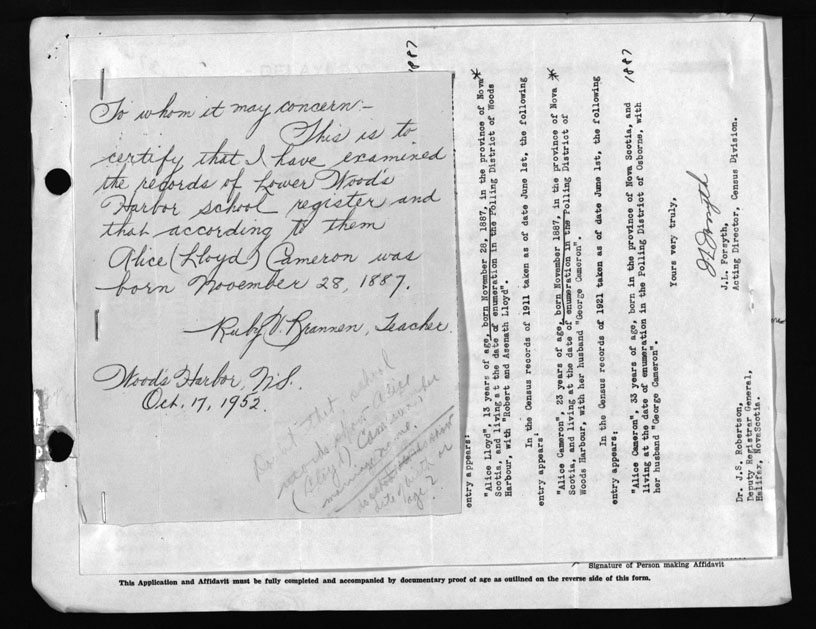 To whom it may concern:-
This is to
certify that I have examined
the records of Lower Wood's
Harbor school register and
that according to them
Alice (Lloyd) Cameron was
born November 28, 1887.
Ruby V. Brannen, Teacher.
Wood's Harbor, N.S.
Oct. 17, 1952.
Cameron
marriage
1887
entry appears:
"Alice Lloyd", 13 years of age, born November 28, 1887, in the province of Nova
Scotia, and living at the date of enumeration in the Polling District of Woods
Harbour, with "Robert and Asenath Lloyd".
In the Census records of 1911 taken as of date June 1st, the following
entry appears:
"Alice Cameron", 23 years of age, born November 1887, in the province of Nova
Scotia, and living at the date of enumeration in the Polling District of
Woods Harbour, with her husband "George Cameron".
In the Census records of 1921 taken as of date June 1st, the following
entry appears:
"Alice Cameron", 33 years of age, born in the province of Nova Scotia, and
living at the date of enumeration in the Polling District of Osborne, with
her husband "George Cameron".
1887
Yours very truly,
J L Forsyth
J.L. Forsyth,
Acting Director, Census Division.
Dr. J.S. Robertson,
Deputy Registrar General,
Halifax, NovaScotia.
Signature of Person making Affidavit
This Application and Affidavit must be fully completed and accompanied by documentary proof of age as outlined on the reverse side of this form.